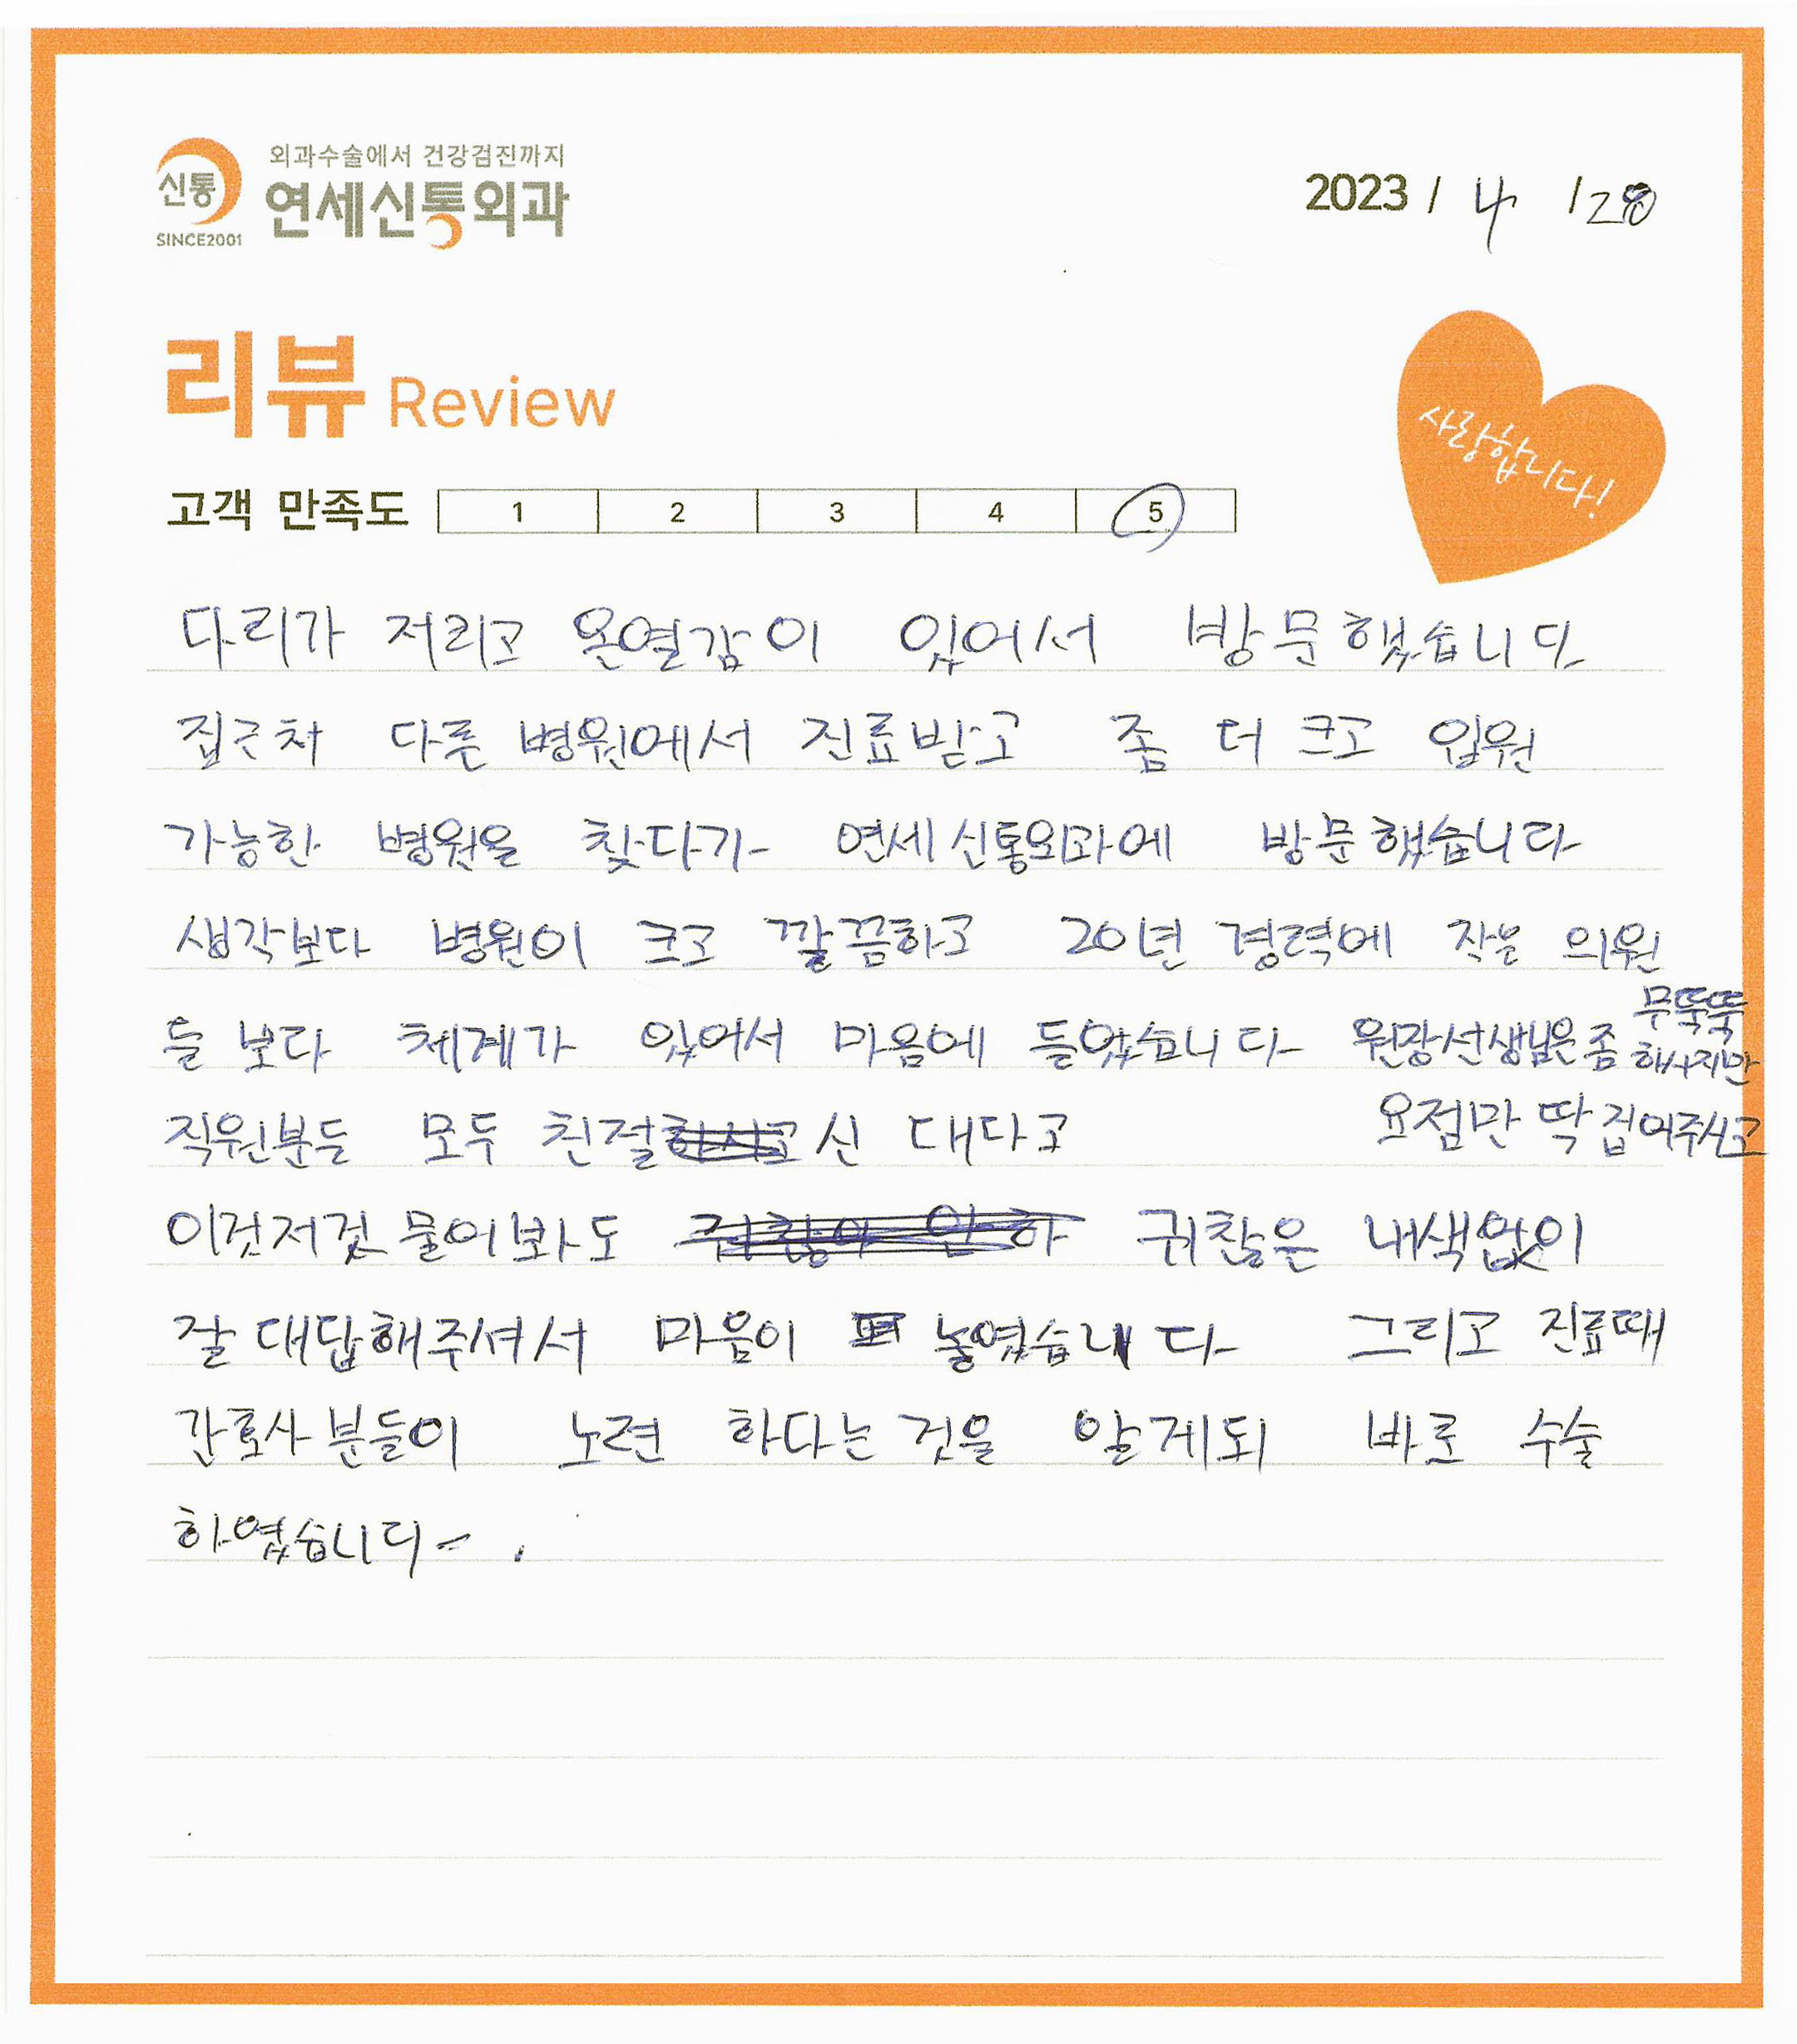 외과수술에서 건강검진까지
신통
연세신통외과
SINCE2001
2023 / 4 / 28
리뷰 Review
사랑합니다!
고객 만족도 1 2 3 4 5
다리가 저리고 온열감이 있어서 방문했습니다
집근처 다른 병원에서 진료받고 좀 더 크고 입원
가능한 병원을 찾다가 연세신통외과에 방문했습니다
생각보다 병원이 크고 깔끔하고 20년 경력에 작은 의원
들 보다 체계가 있어서 마음에 들었습니다 원장선생님은 좀 무뚝뚝
하시지만
요점만 딱 집어주시고
직원분들 모두 친절하신 대다고
이것저것 물어봐도 귀찮은 내색없이
잘 대답해주셔서 마음이 놓였습니다 그리고 진료때
간호사분들이 노련 하다는 것을 알게되 바로 수술
하였습니다.